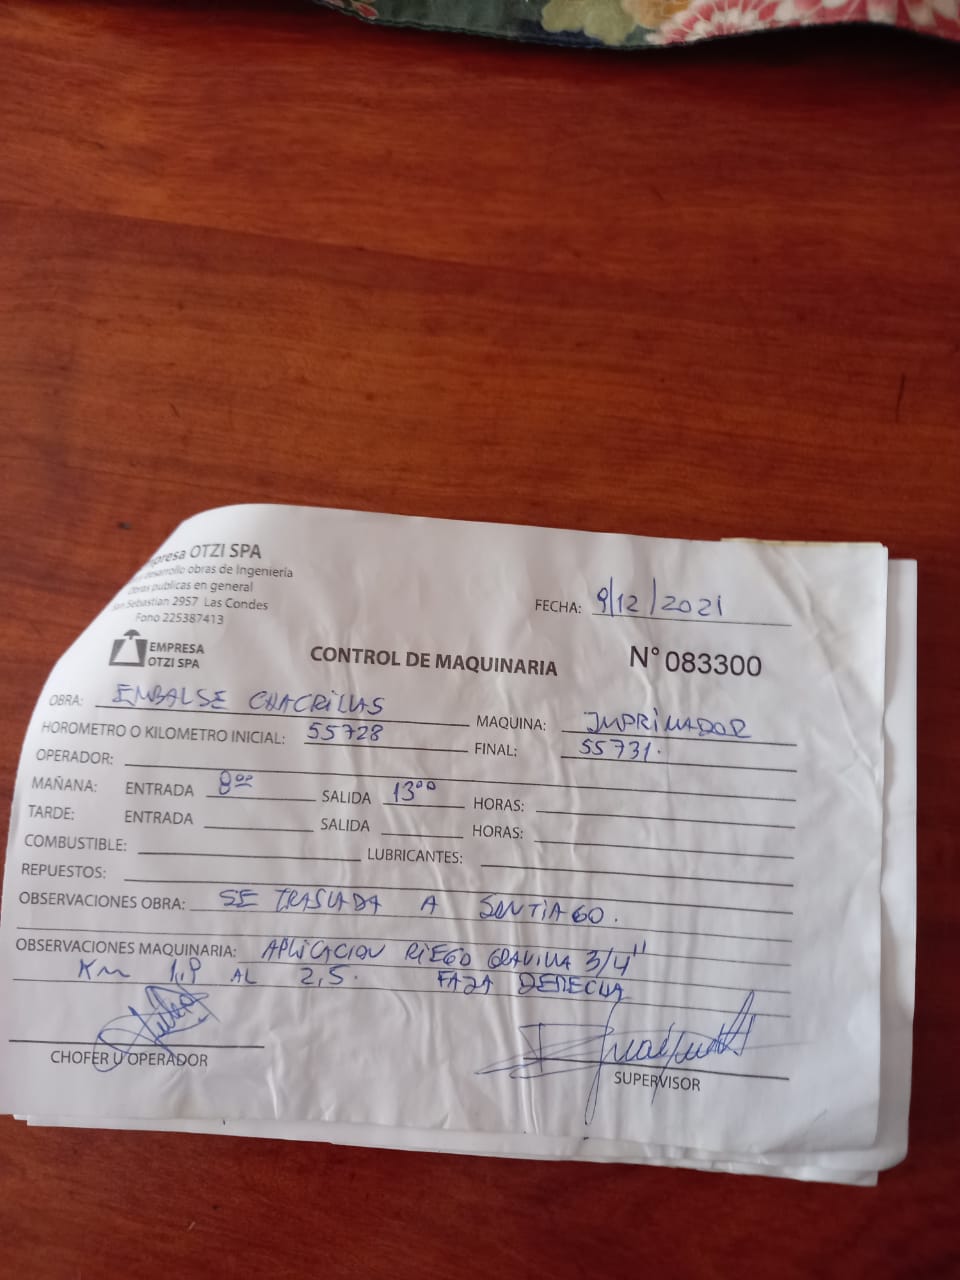 presa OTZI SPA
desarrollo obras de Ingeniería
Obras públicas en general
San Sebastian 2957 Las Condes
Fono 225387413
EMPRESA
OTZI SPA
FECHA: 9/12/2021
CONTROL DE MAQUINARIA
N° 083300
OBRA: EMBALSE CHACRILLAS MAQUINA: IMPRIMADOR
HOROMETRO O KILOMETRO INICIAL: 55728 FINAL: 55731.
OPERADOR:
MAÑANA: ENTRADA 8:00 SALIDA 13:00 HORAS:
TARDE: ENTRADA SALIDA HORAS:
COMBUSTIBLE: LUBRICANTES:
REPUESTOS:
OBSERVACIONES OBRA: SE TRASLADA A SANTIAGO.
OBSERVACIONES MAQUINARIA: APLICACION RIEGO GRAVILLA 3/4"
KM 1.9 AL 2,5. FAJA DERECHA
CHOFER U OPERADOR
SUPERVISOR